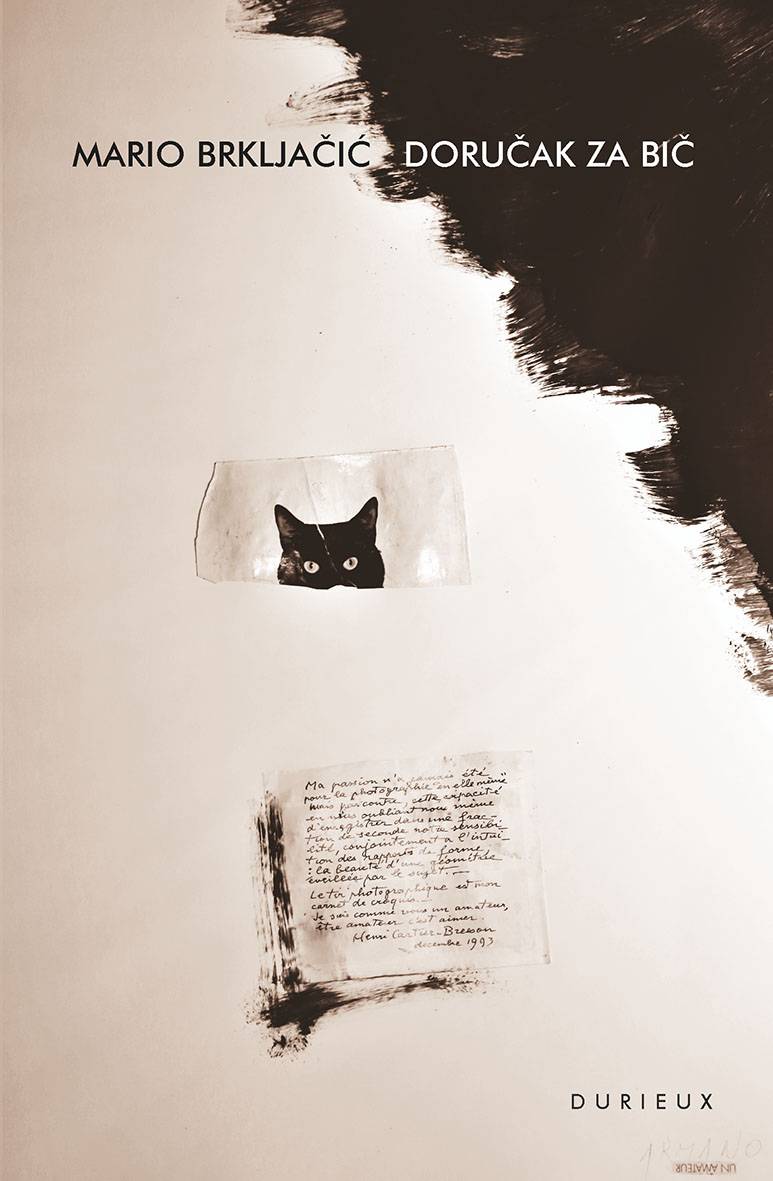 MARIO BRKLJAČIĆ DORUČAK ZA BIČ
Ma passion n'a jamais été
pour la photographie "en elle même"
mais par contre, cette capacité
en nous oubliant nous même
d'enregistrer dans une frac-
tion de seconde notre sensibi-
lité, conjointement a l'intui-
tion des rapports de forme
: la beauté d'une géométrie
éveillée par le sujet.—
Le tir photographique est mon
carnet de croquis.—
Je suis comme vous un amateur,
être amateur c'est aimer.
Henri Cartier-Bresson
decembre 1993
DURIEUX
ARMANO
UN AMATEUR